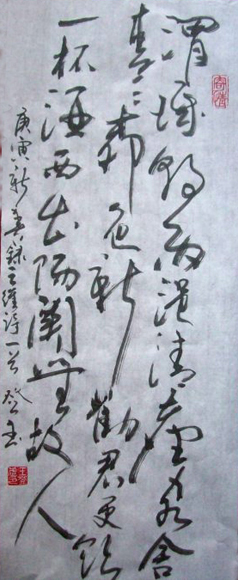 渭城朝雨浥清尘客舍
青青柳色新劝君更饮
一杯酒西出阳关无故人
庚寅新春录王维诗一首